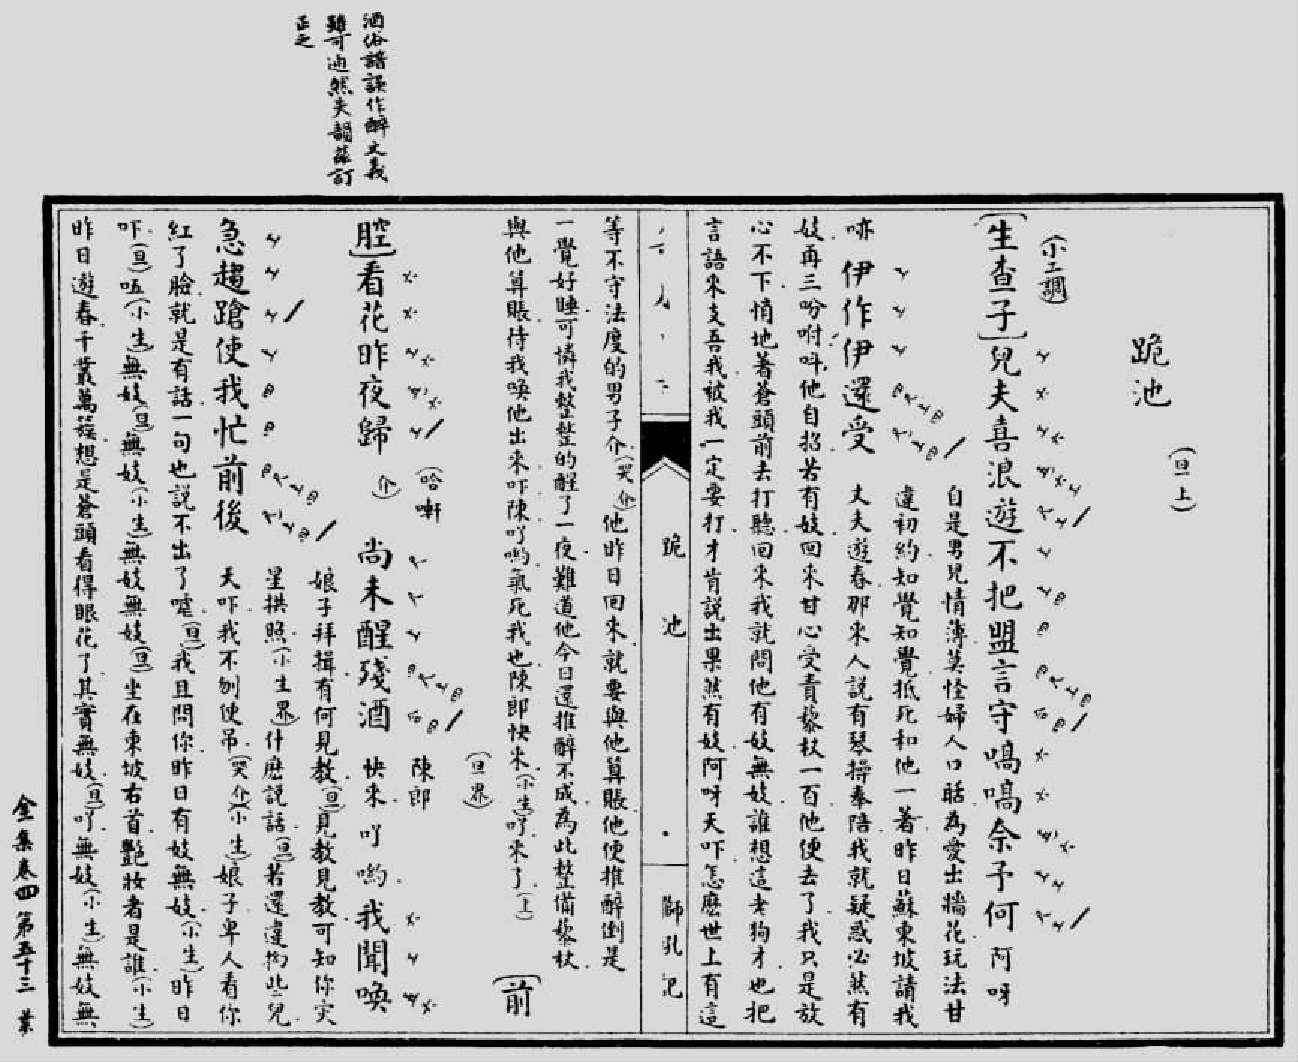 酒俗譜誤作醉文義
雖可通然失韻茲訂
正之
跪池
(旦上)
(小工調)
[生查子]兒夫喜浪遊不把盟言守嗃嗃奈予何阿呀
自是男兒情薄莫怪婦人口聒為愛出墻花玩法甘
違初約知覺知覺抵死和他一著昨日蘇東坡請我
丈夫遊春那來人說有琴操奉陪我就疑惑必然有
亦伊作伊還受
妓再三吩咐呌他自招若有妓回來甘心受責藜杖一百他便去了我只是放
心不下悄地著蒼頭前去打聽回來我就問他有妓無妓誰想這老狗才也把
言語來支吾我被我一定要打才肯說出果然有妓阿呀天吓怎麽世上有這
跪池
獅吼記
等不守法度的男子介(哭介)他昨日回來就要與他算賬他便推醉倒是
一覺好睡可憐我整整的醒了一夜難道他今日還推醉不成為此整備藜杖
與他算賬待我喚他出來吓陳吖喲氣死我也陳郎快來(小生)吖來了(上)
[前
(旦界)
腔]看花昨夜歸(介)尚未醒殘酒快來吖喲我聞喚
(哈㖸)
陳郎
急趨蹌使我忙前後
娘子拜揖有何見教(旦)見教見教可知你災
星拱照(小生界)什麽說話(旦)若還違拗些兒
天吓我不刎便吊(哭介)(小生)娘子卑人看你
紅了臉就是有話一句也說不出了嘘(旦)我且問你昨日有妓無妓(小生)昨日
吓(旦)㕶(小生)無妓(旦)無妓(小生)無妓無妓(旦)坐在東坡右首艷妝者是誰(小生)
昨日遊春千叢萬簇想是蒼頭看得眼花了其實無妓(旦)吖無妓(小生)無妓無
全集卷四第五十三葉